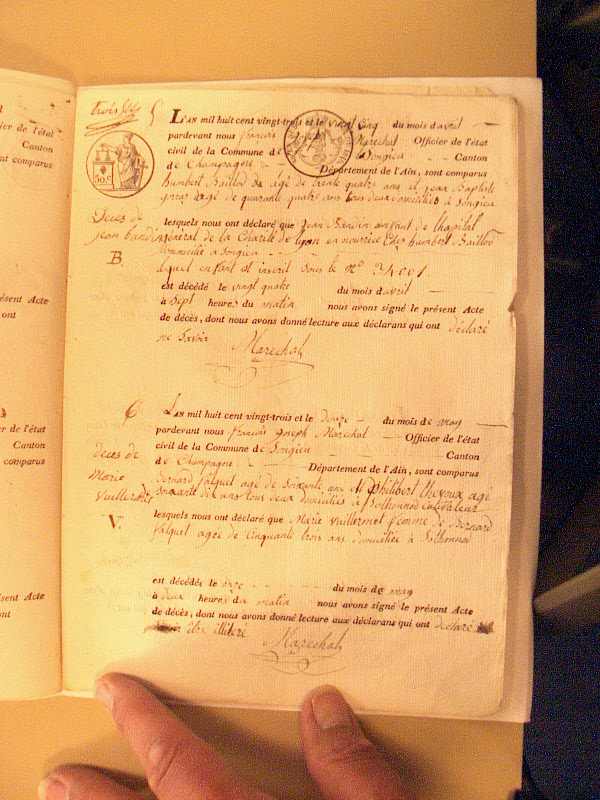 trois
5
L'AN mil huit cent vingt-trois et le vingt cinq du mois d'avril
pardevant nous françois joseph Marechal Officier de l'état
civil de la Commune de Songieu Canton
de Champagne Département de l'Ain, sont comparus
humbert Baillod agé de trente quatre ans et jean Baptiste
agé de quarante quatre ans tous deux domiciliés à Songieu
Deces de
jean bandin
B.
lesquels nous ont déclaré que Jean Bandin enfant de l'hopital
general de la Charité de lyon en nourrice chez humbert Baillod
domicilié a Songieu
lequel enfant est inscrit sous le nº 34001
est décédé le vingt quatre du mois d'avril
à sept heures du matin nous avons signé le présent Acte
de décès, dont nous avons donné lecture aux déclarans qui ont déclaré
ne savoir
Marechal
6
L'AN mil huit cent vingt-trois et le douze du mois de may
pardevant nous françois joseph Marechal Officier de l'état
civil de la Commune de Songieu Canton
de Champagne Département de l'Ain, sont comparus
bernard falquet agé de soixante ans et philibert thevoux agé
soixante et ans tous deux domiciliés à Sothonnod cultivateur
deces de
Marie
Vuillermet
V.
lesquels nous ont déclaré que Marie Vuillermet femme de Bernard
falquet agée de cinquante trois ans domiciliée à Sothonnod
est décédés le onze du mois de may
à deux heures du matin nous avons signé le présent Acte
de décès, dont nous avons donné lecture aux déclarans qui ont déclaré
être illitéré
Marechal
er de l'état
Canton
nt comparus
ésent Acte
ont
er de l'état
Canton
comparus
sent Acte
ont